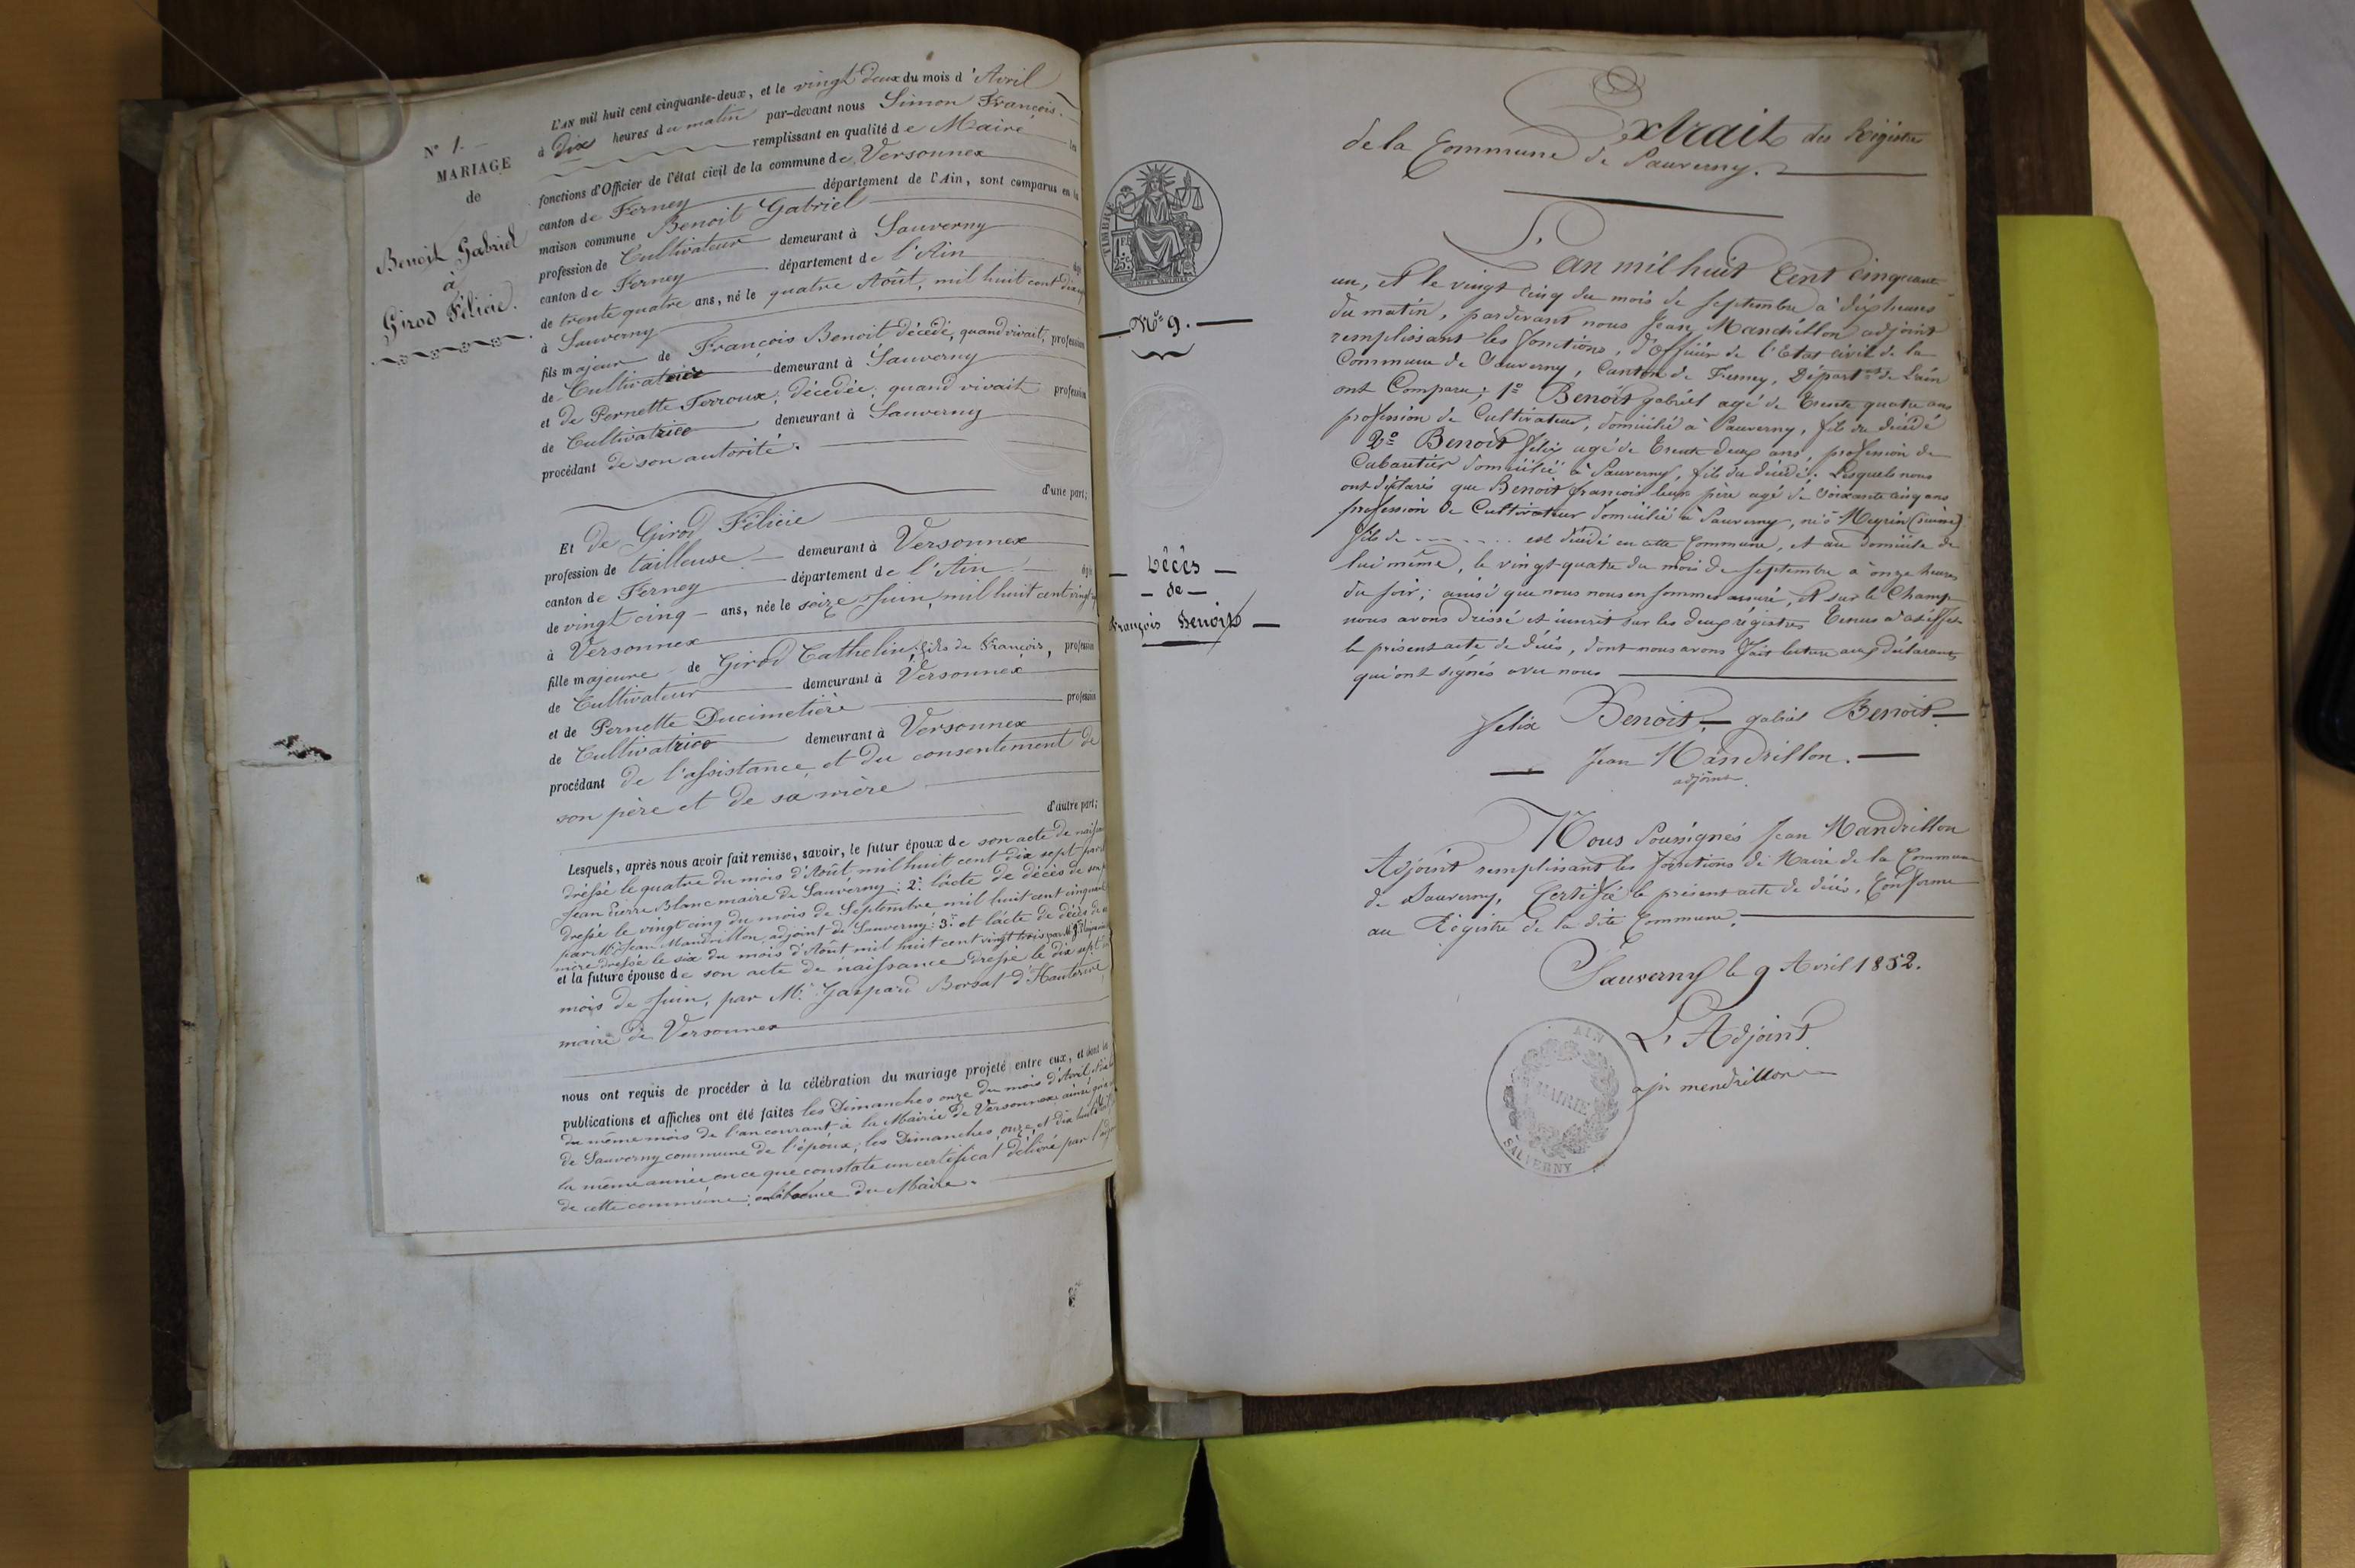 N° 1.
MARIAGE
de
Benoit Gabriel
à
Girod Félicie.
L'AN mil huit cent cinquante-deux, et le vingt deux du mois d'Avril
à dix heures du matin par-devant nous Simon François
remplissant en qualité de Maire les
fonctions d'Officier de l'état civil de la commune de Versonnex
canton de Ferney département de l'Ain, sont comparus en la
maison commune Benoit Gabriel
profession de Cultivateur demeurant à Sauverny
canton de Ferney département de l'Ain âgé
de trente quatre ans, né le quatre Août, mil huit cent dix
à Sauverny
fils majeur de François Benoit décédé, quand vivait, profession
de Cultivateur demeurant à Sauverny
et de Pernette Terroux, décédée, quand vivait profession
de Cultivatrice demeurant à Sauverny
procédant de son autorité.
d'une part;
Et de Girod Félicie
profession de tailleuse demeurant à Versonnex
canton de Ferney département de l'Ain âgée
de vingt cinq ans, née le seize Juin, mil huit cent vingt
à Versonnex
fille majeure de Girod Cathelin, fils de François, profession
de Cultivateur demeurant à Versonnex
et de Pernette Ducimetière profession
de Cultivatrice demeurant à Versonnex
procédant de l'assistance et du consentement de
son père et de sa mère
d'autre part;
Lesquels, après nous avoir fait remise, savoir, le futur époux de son acte de
dressé le quatre du mois d'Août mil huit cent dix sept par
Jean Pierre Blanc maire de Sauverny; 2° l'acte de décès de son
dressé le vingt cinq du mois de Septembre mil huit cent cinquante
par Mr Jean Mandrillon adjoint de Sauverny; 3° et l'acte de décès de
mère dressé le six du mois d'Août mil huit cent vingt trois par
et la future épouse de son acte de naissance dressé le dix sept
mois de Juin, par Mr Gaspard Borsat d'Hauterive
maire de Versonnex
nous ont requis de procéder à la célébration du mariage projeté entre eux, et dont les
publications et affiches ont été faites les Dimanches onze du mois d'Avril
du même mois de l'an courant à la Mairie de Versonnex ainsi
de Sauverny commune de l'époux; les Dimanches onze et dix huit
la même année en ce que constate un certificat délivré par
de cette commune du Maire.
Extrait des Régistres
de la Commune de Sauverny.
N° 9.
Décès
de
François Benoit
L'an mil huit Cent Cinquante
un, et le vingt cinq du mois de septembre à dix heures
du matin, pardevant nous Jean Mandrillon adjoint
remplissant les fonctions, d'officier de l'Etat civil de la
Commune de Sauverny, Canton de Ferney, Départ.t de l'ain
ont Comparu; 1° Benoit gabriel agé de Trente quatre ans
profession de Cultivateur, domicilié à Sauverny, fils du décédé
2° Benoit félix agé de Trente deux ans, profession de
Cabaretier domicilié à Sauverny, fils du décédé. Lesquels nous
ont déclarés que Benoit françois leur père agé de soixante cinq ans
profession de Cultivateur domicilié à Sauverny, né à Meyrin (suisse)
fils de . . . . . . est décédé en cette Commune, et au domicile de
lui même, le vingt-quatre du mois de septembre à onze heures
du soir; ainsi que nous nous en sommes assuré, et sur le Champ
nous avons dressé et inscrit sur les deux régistres Tenus à cet effet
le présent acte de décès, dont nous avons fait lecture aux déclarants
qui ont signés avec nous
félix Benoit, gabriel Benoit
Jean Mandrillon.
adjoint
Nous Soussignés Jean Mandrillon
Adjoint remplissant les fonctions de Maire de la Commune
de Sauverny, Certifié le présent acte de décès, Conforme
au Régistre de la dite Commune.
Sauverny le 9 Avril 1852.
L'Adjoint
mendrillon
AIN
MAIRIE
SAUVERNY